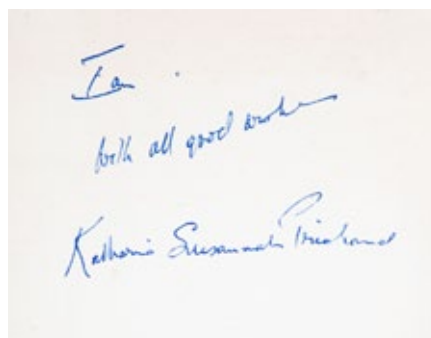 Ian.
with all good wishes
Katharine Susannah Prichard